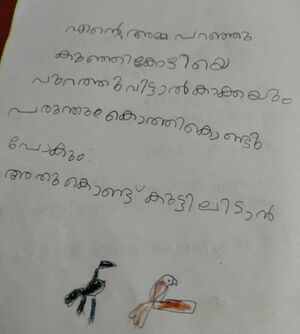 എന്റെ അമ്മ പറഞ്ഞു
കുഞ്ഞികോഴിയെ
പുറത്തുവിട്ടാൽ കാക്കയും
പരുന്തും കൊത്തികൊണ്ടു
പോകും.
അതുകൊണ്ട് കൂട്ടിലിടാൻ